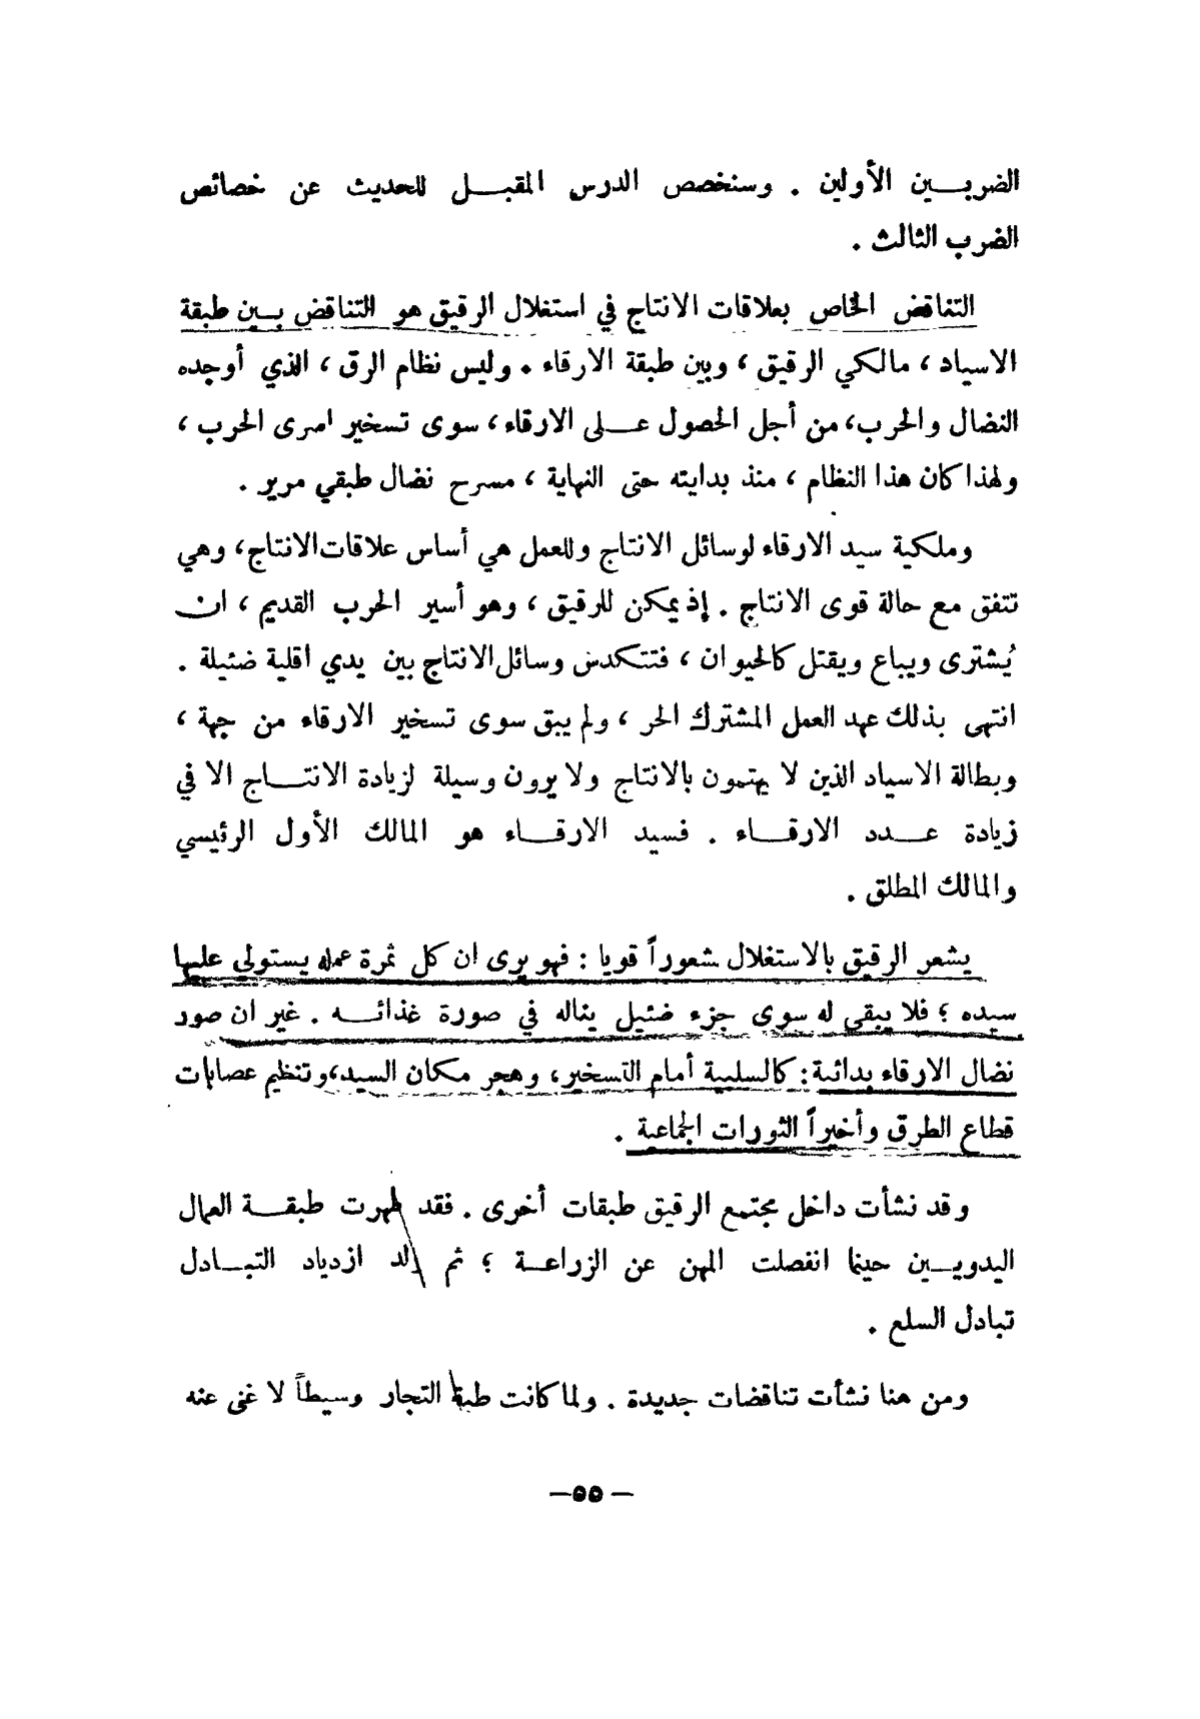 الضربين الأولين . وسنخصص الدرس المقبل للحديث عن خصائص
الضرب الثالث .
التناقض الخاص بعلاقات الانتاج في استغلال الرقيق هو التناقض بين طبقة
الاسياد ، مالكي الرقيق ، وبين طبقة الارقاء . وليس نظام الرق ، الذي أوجده
النضال والحرب، من أجل الحصول على الارقاء ، سوى تسخير اسرى الحرب ،
ولهذا كان هذا النظام ، منذ بدايته حتى النهاية ، مسرح نضال طبقي مرير .
وملكية سيد الارقاء لوسائل الانتاج وللعمل هي أساس علاقات الانتاج، وهي
تتفق مع حالة قوى الانتاج . إذ يمكن للرقيق ، وهو أسير الحرب القديم ، ان
يُشترى ويباع ويقتل كالحيوان ، فتتكدس وسائل الانتاج بين يدي اقلية ضئيلة .
انتهى بذلك عهد العمل المشترك الحر ، ولم يبق سوى تسخير الارقاء من جهة ،
وبطالة الاسياد الذين لا يهتمون بالانتاج ولا يرون وسيلة لزيادة الانتاج الا في
زيادة عدد الارقاء . فسيد الارقاء هو المالك الأول الرئيسي
والمالك المطلق .
يشعر الرقيق بالاستغلال شعوراً قويا : فهو يرى ان كل ثمرة عمله يستولي عليها
سيده ؛ فلا يبقى له سوى جزء ضئيل يناله في صورة غذائه . غير ان صور
نضال الارقاء بدائية : كالسلبية أمام التسخير ، وهجر مكان السيد، وتنظيم عصابات
قطاع الطرق وأخيراً الثورات الجماعية .
وقد نشأت داخل مجتمع الرقيق طبقات أخرى . فقد ظهرت طبقة العمال
اليدويين حينما انفصلت المهن عن الزراعة ؛ ثم ولد ازدياد التبادل
تبادل السلع .
ومن هنا نشأت تناقضات جديدة . ولما كانت طبقة التجار وسيطاً لا غنى عنه
— ٥٥ —